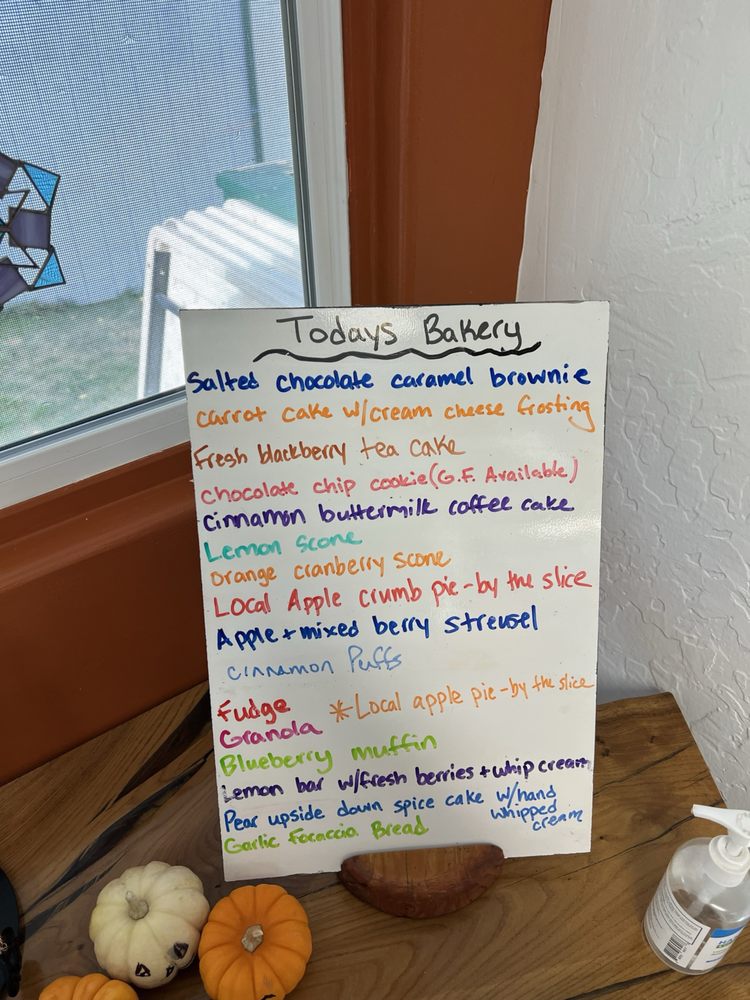 Todays Bakery
Salted chocolate caramel brownie
carrot cake w/cream cheese frosting
Fresh blackberry tea cake
chocolate chip cookie (G.F. Available)
cinnamon buttermilk coffee cake
Lemon scone
orange cranberry scone
Local Apple crumb pie-by the slice
Apple + mixed berry streusel
cinnamon Puffs
Fudge *Local apple pie-by the slice
Granola
Blueberry muffin
Lemon bar w/fresh berries + whip cream
Pear upside down spice cake w/hand whipped cream
Garlic Focaccia Bread